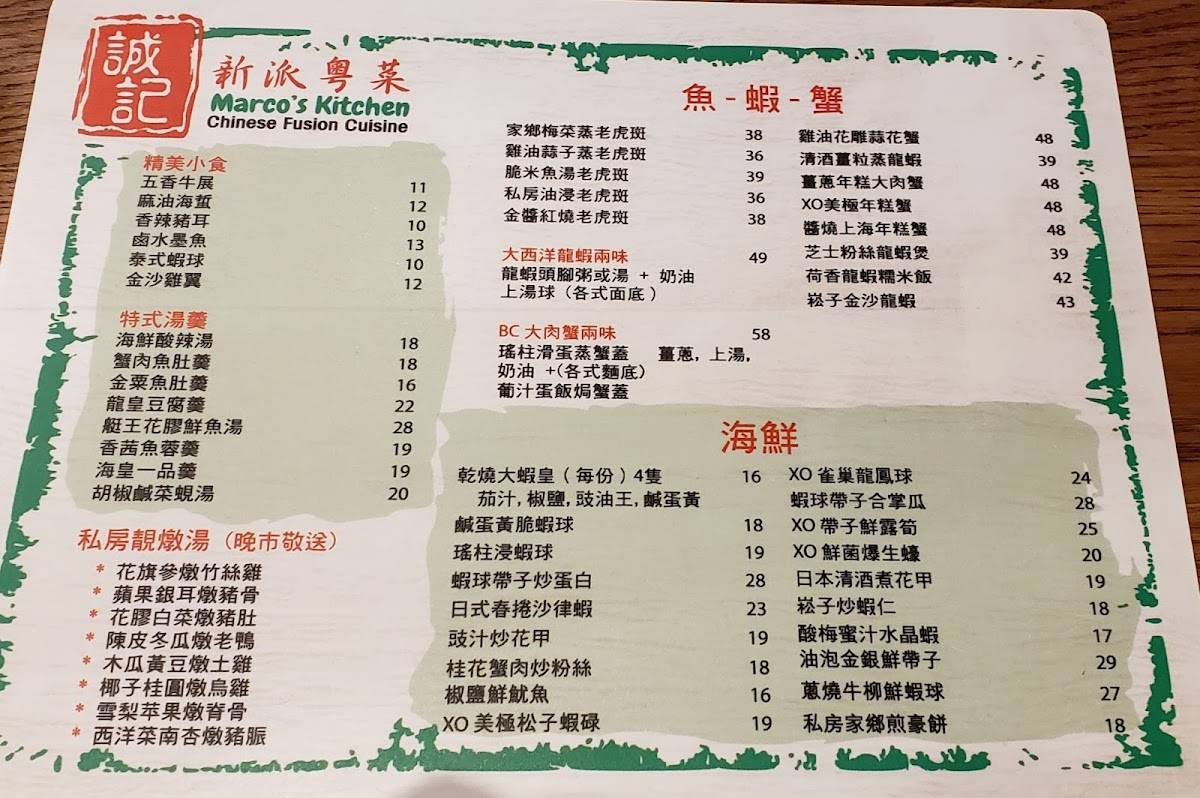 誠記
新派粵菜
Marco's Kitchen
Chinese Fusion Cuisine
精美小食
五香牛展 11
麻油海蜇 12
香辣豬耳 10
鹵水墨魚 13
泰式蝦球 10
金沙雞翼 12
特式湯羹
海鮮酸辣湯 18
蟹肉魚肚羹 18
金粟魚肚羹 16
龍皇豆腐羹 22
艇王花膠鮮魚湯 28
香茜魚蓉羹 19
海皇一品羹 19
胡椒鹹菜蜆湯 20
私房靚燉湯（晚市敬送）
* 花旗參燉竹絲雞
* 蘋果銀耳燉豬骨
* 花膠白菜燉豬肚
* 陳皮冬瓜燉老鴨
* 木瓜黃豆燉土雞
* 椰子桂圓燉烏雞
* 雪梨苹果燉脊骨
* 西洋菜南杏燉豬脤
魚 - 蝦 - 蟹
家鄉梅菜蒸老虎斑 38
雞油蒜子蒸老虎斑 36
脆米魚湯老虎斑 39
私房油浸老虎斑 36
金醬紅燒老虎斑 38
大西洋龍蝦兩味 49
龍蝦頭腳粥或湯 + 奶油
上湯球（各式面底）
BC 大肉蟹兩味 58
瑤柱滑蛋蒸蟹蓋 薑蔥, 上湯,
奶油 +(各式麵底)
葡汁蛋飯焗蟹蓋
雞油花雕蒜花蟹 48
清酒薑粒蒸龍蝦 39
薑蔥年糕大肉蟹 48
XO美極年糕蟹 48
醬燒上海年糕蟹 48
芝士粉絲龍蝦煲 39
荷香龍蝦糯米飯 42
崧子金沙龍蝦 43
海鮮
乾燒大蝦皇（每份）4隻 16
茄汁, 椒鹽, 豉油王, 鹹蛋黃
鹹蛋黃脆蝦球 18
瑤柱浸蝦球 19
蝦球帶子炒蛋白 28
日式春捲沙律蝦 23
豉汁炒花甲 19
桂花蟹肉炒粉絲 18
椒鹽鮮魷魚 16
XO 美極松子蝦碌 19
XO 雀巢龍鳳球 24
蝦球帶子合掌瓜 28
XO 帶子鮮露筍 25
XO 鮮菌爆生蠔 20
日本清酒煮花甲 19
崧子炒蝦仁 18
酸梅蜜汁水晶蝦 17
油泡金銀鮮帶子 29
蔥燒牛柳鮮蝦球 27
私房家鄉煎豪餅 18